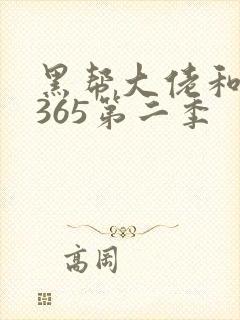 黑帮大佬和
365第二季
高冈